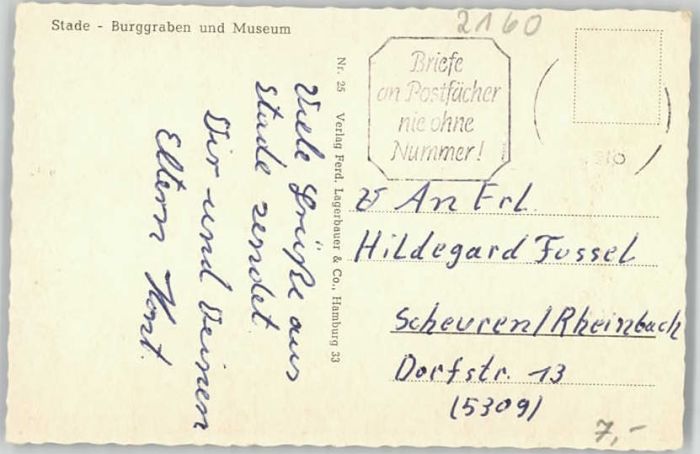 Stade - Burggraben und Museum
2160
Briefe
an Postfächer
nie ohne
Nummer!
Nr. 25 Verlag Ferd. Lagerbauer & Co., Hamburg 33
Viele Grüße aus
Stade sendet
Dir und Deinen
Eltern
An Frl.
Hildegard Fussel
Scheuren/Rheinbach
Dorfstr. 13
(5309)
7,-